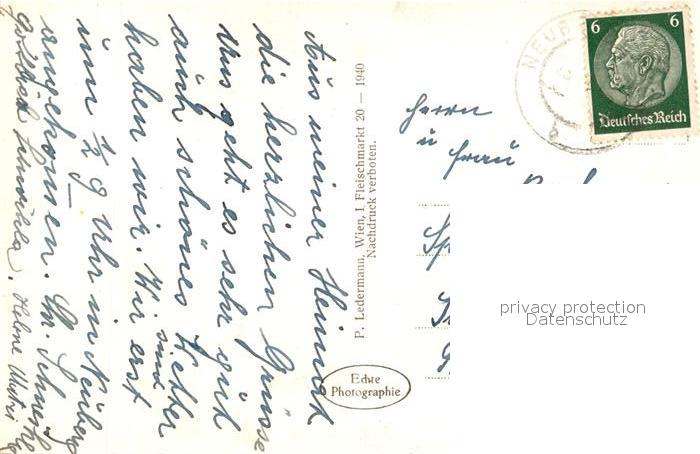 Aus meiner Heimat
die herzlichen Grüsse
Uns geht es sehr gut
auch schönes Wetter
haben wir. Wir sind erst
um ½ 9 Uhr in Neuberg
angekommen. Gr. Schneider
Helene
P. Ledermann, Wien, I Fleischmarkt 20 — 1940
Nachdruck verboten.
Echte
Photographie
NEUB
6 6
Deutsches Reich
Herrn
u Frau
privacy protection
Datenschutz